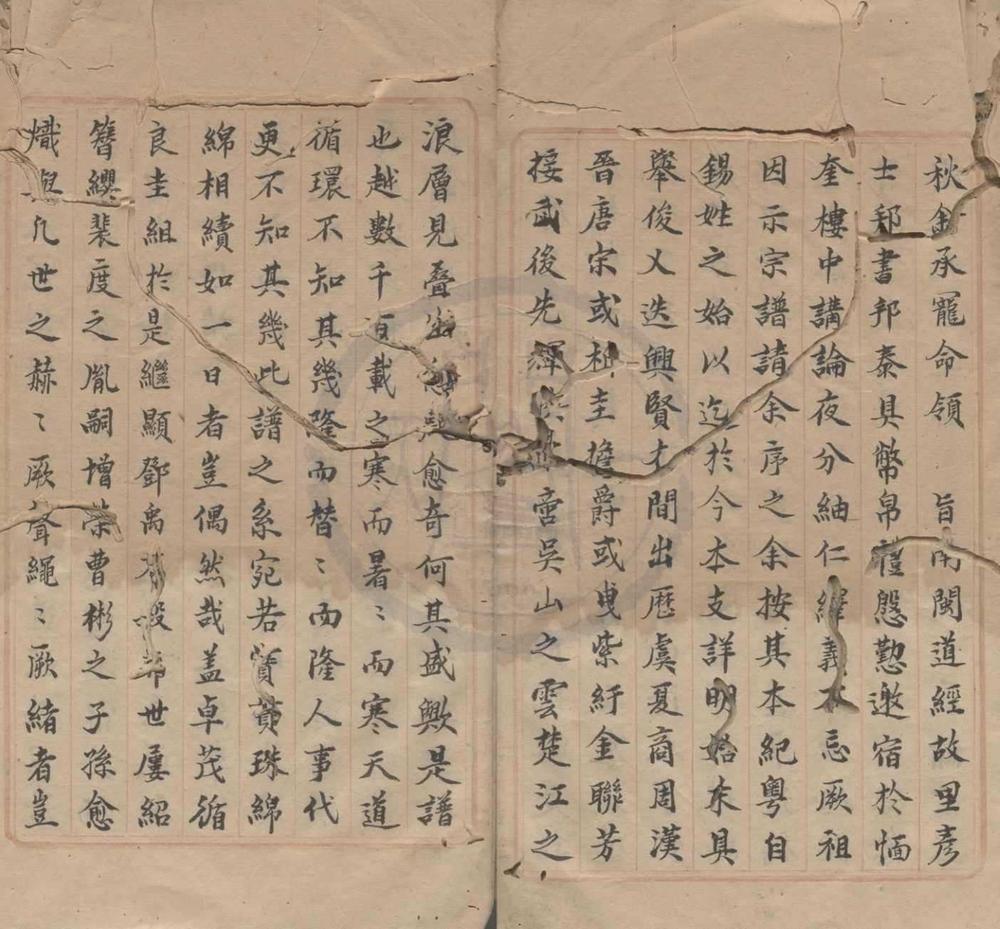 秋余承寵命領　旨南閩道經故里彥
士郄書邦泰具幣帛禮慇懃邀宿於愐
奎樓中講論夜分紬仁繹義不忘厥祖
因示宗譜請余序之余按其本紀粤自
錫姓之始以迄於今本支詳明始末具
舉俊乂迭興賢才間出歷虞夏商周漢
晉唐宋或析圭擔爵或曳紫紆金聯芳
接武後先輝啻吳山之雲楚江之
浪層見疊出愈奇何其盛歟是譜
也越數千百載之寒而暑〻而寒天道
循環不知其幾隆而替〻而隆人事代
更不知其幾此譜之系宛若貫珠綿
綿相續如一日者豈偶然哉盖卓茂循
良圭組於是繼顯鄧禹世屢紹
簪纓裴度之胤嗣增榮曹彬之子孫愈
熾凢世之赫〻厥聲繩〻厥緒者豈